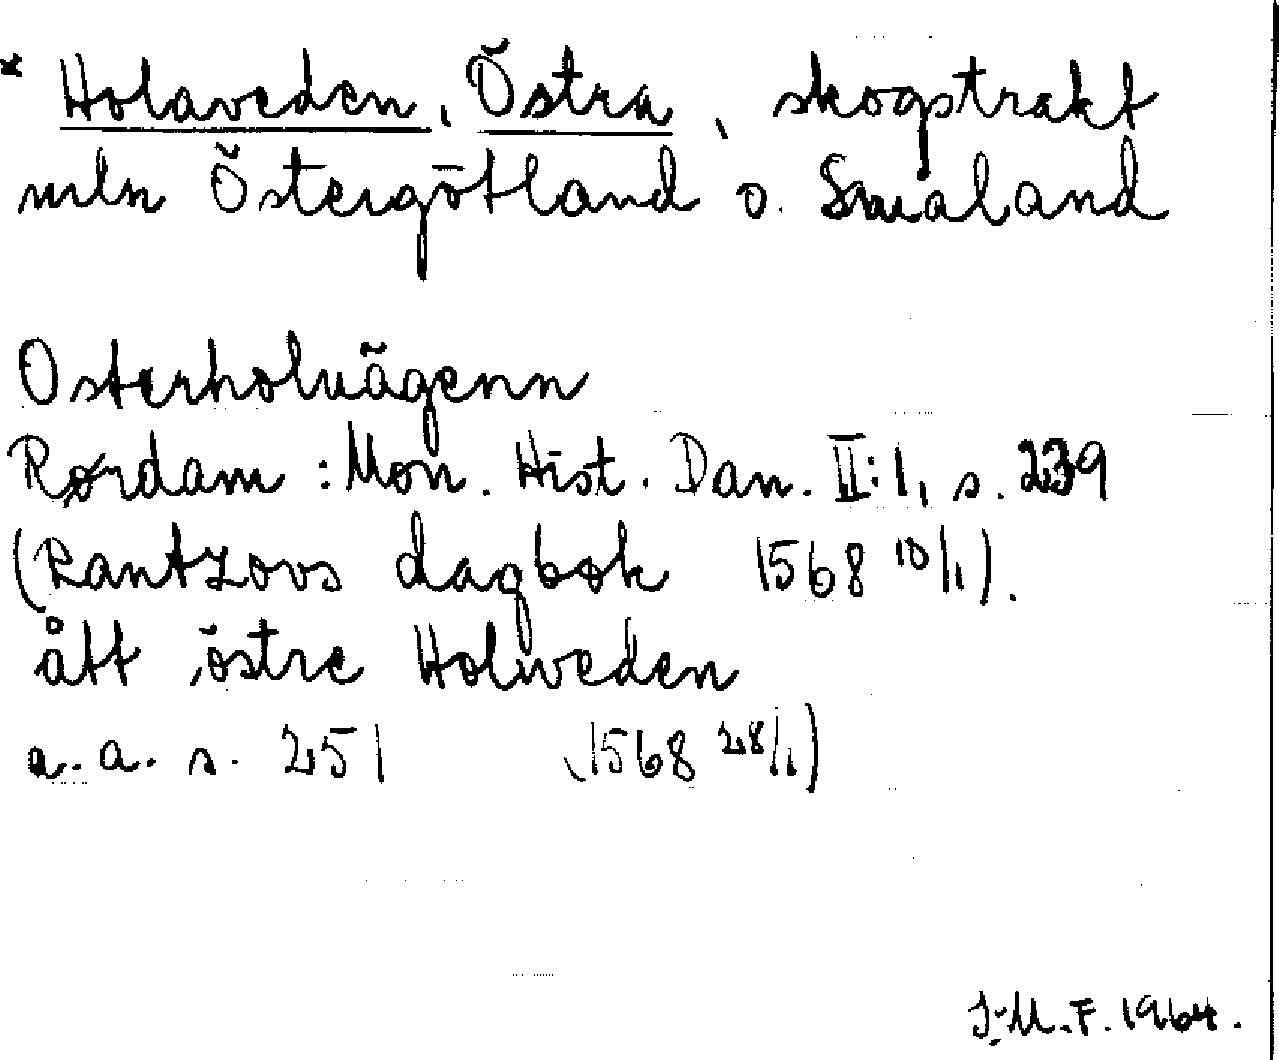 * Holaveden, Östra, skogstrakt
mln Östergötland o. Småland
Osterholuägenn
Rørdam: Mon. Hist. Dan. II:1, s. 239
(Rantzovs dagbok 1568 10/1).
ått östre Holweden
a.a. s. 251 (1568 28/1)
J.M.F. 1964.